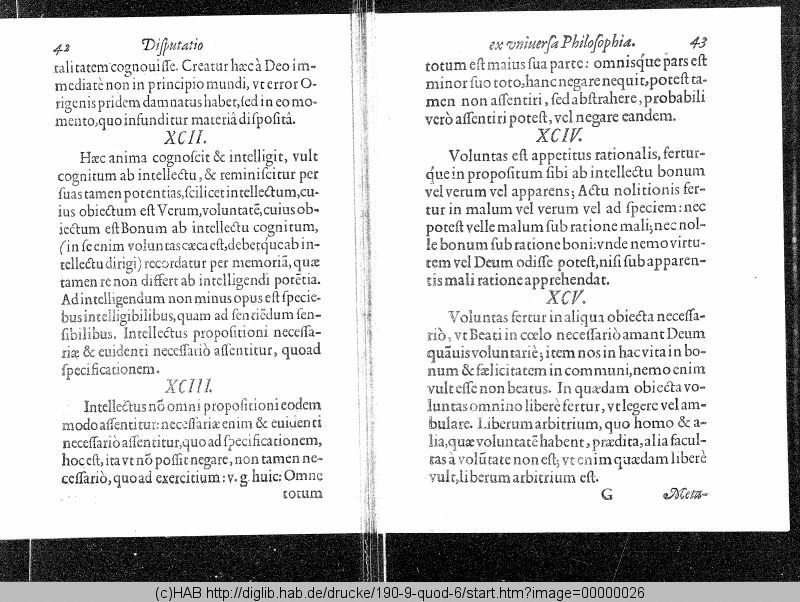 42 Diſputatio
talitatem cognouiſſe. Creatur hæc à Deo im-
mediatè non in principio mundi, vt error O-
rigenis pridem damnatus habet, ſed in eo mo-
mento, quo infunditur materiâ diſpoſitâ.
XCII.
Hæc anima cognoſcit & intelligit, vult
cognitum ab intellectu, & reminiſcitur per
ſuas tamen potentias, ſcilicet intellectum, cu-
ius obiectum eſt Verum, voluntatē, cuius ob-
iectum eſt Bonum ab intellectu cognitum,
(in ſe enim voluntas cæca eſt, debetque ab in-
tellectu dirigi) recordatur per memoriā, quæ
tamen re non differt ab intelligendi potētia.
Ad intelligendum non minus opus eſt ſpecie-
bus intelligibilibus, quam ad ſentiēdum ſen-
ſibilibus. Intellectus propoſitioni neceſſa-
riæ & euidenti neceſſariò aſſentitur, quoad
ſpecificationem.
XCIII.
Intellectus nō omni propoſitioni eodem
modo aſſentitur: neceſſariæ enim & euidenti
neceſſariò aſſentitur, quo ad ſpecificationem,
hoc eſt, ita vt nō poſſit negare, non tamen ne-
ceſſariò, quo ad exercitium: v. g. huic: Omne
totum
ex vniuerſa Philoſophia. 43
totum eſt maius ſua parte: omnisq́ue pars eſt
minor ſuo toto, hanc negare nequit, poteſt ta-
men non aſſentiri, ſed abſtrahere, probabili
verò aſſentiri poteſt, vel negare eandem.
XCIV.
Voluntas eſt appetitus rationalis, fertur-
q́ue in propoſitum ſibi ab intellectu bonum
vel verum vel apparens; Actu nolitionis fer-
tur in malum vel verum vel ad ſpeciem: nec
poteſt velle malum ſub ratione mali; nec nol-
le bonum ſub ratione boni: vnde nemo virtu-
tem vel Deum odiſſe poteſt, niſi ſub apparen-
tis mali ratione apprehendat.
XCV.
Voluntas fertur in aliqua obiecta neceſſa-
riò, vt Beati in cœlo neceſſariò amant Deum
quāuis voluntariè; item nos in hac vita in bo-
num & fælicitatem in communi, nemo enim
vult eſſe non beatus. In quædam obiecta vo-
luntas omnino liberè fertur, vt legere vel am-
bulare. Liberum arbitrium, quo homo & a-
lia, quæ voluntatē habent, prædita, alia facul-
tas à volūtate non eſt; vt enim quædam liberè
vult, liberum arbitrium eſt.
G Meta-
(c)HAB http://diglib.hab.de/drucke/190-9-quod-6/start.htm?image=00000026